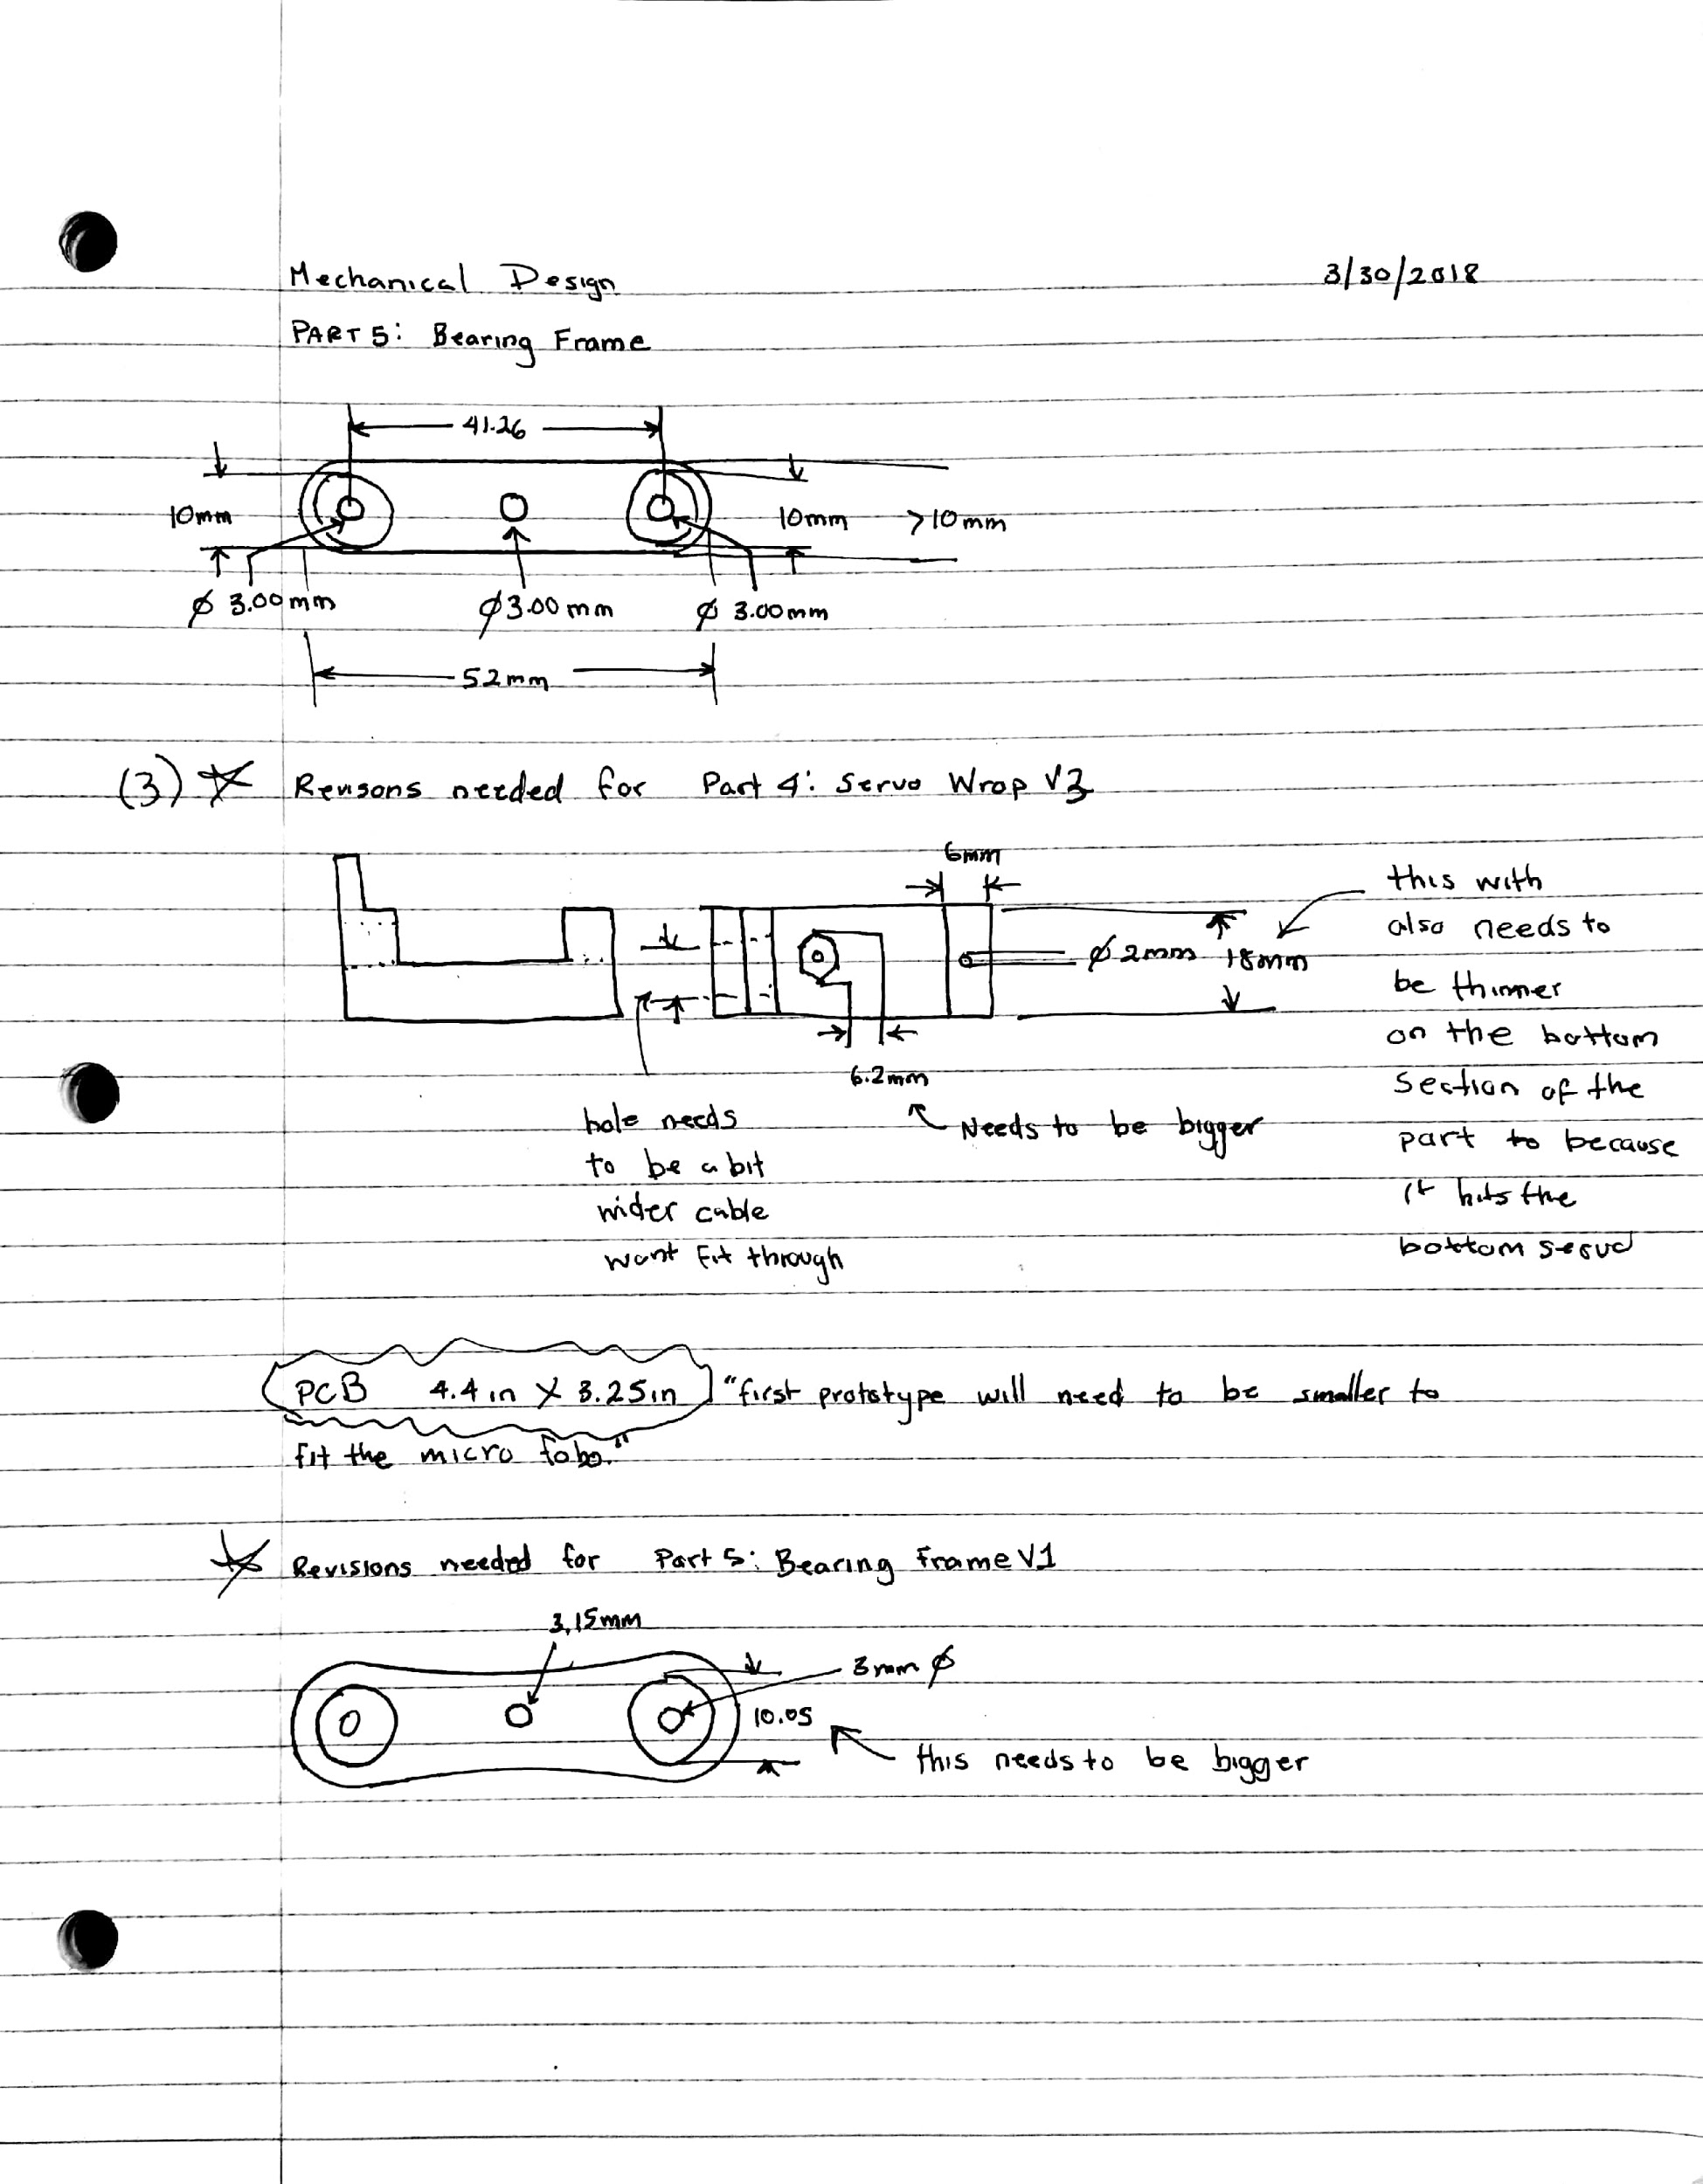 Mechanical Design
3/30/2018
PART 5: Bearing Frame
41.26
10mm
10mm
>10mm
ϕ 3.00mm
ϕ3.00mm
ϕ 3.00mm
52mm
(3) Revisons needed for Part 4: Servo Wrap V3
6mm
ϕ 2mm
18mm
6.2mm
this with
also needs to
be thinner
on the bottom
section of the
part to because
it hits the
bottom servo
hole needs
to be a bit
wider cable
wont fit through
Needs to be bigger
PCB 4.4in X 3.25in "first prototype will need to be smaller to
fit the micro fobo."
Revisions needed for Part 5: Bearing Frame V1
3.15mm
3mm ϕ
10.05
this needs to be bigger